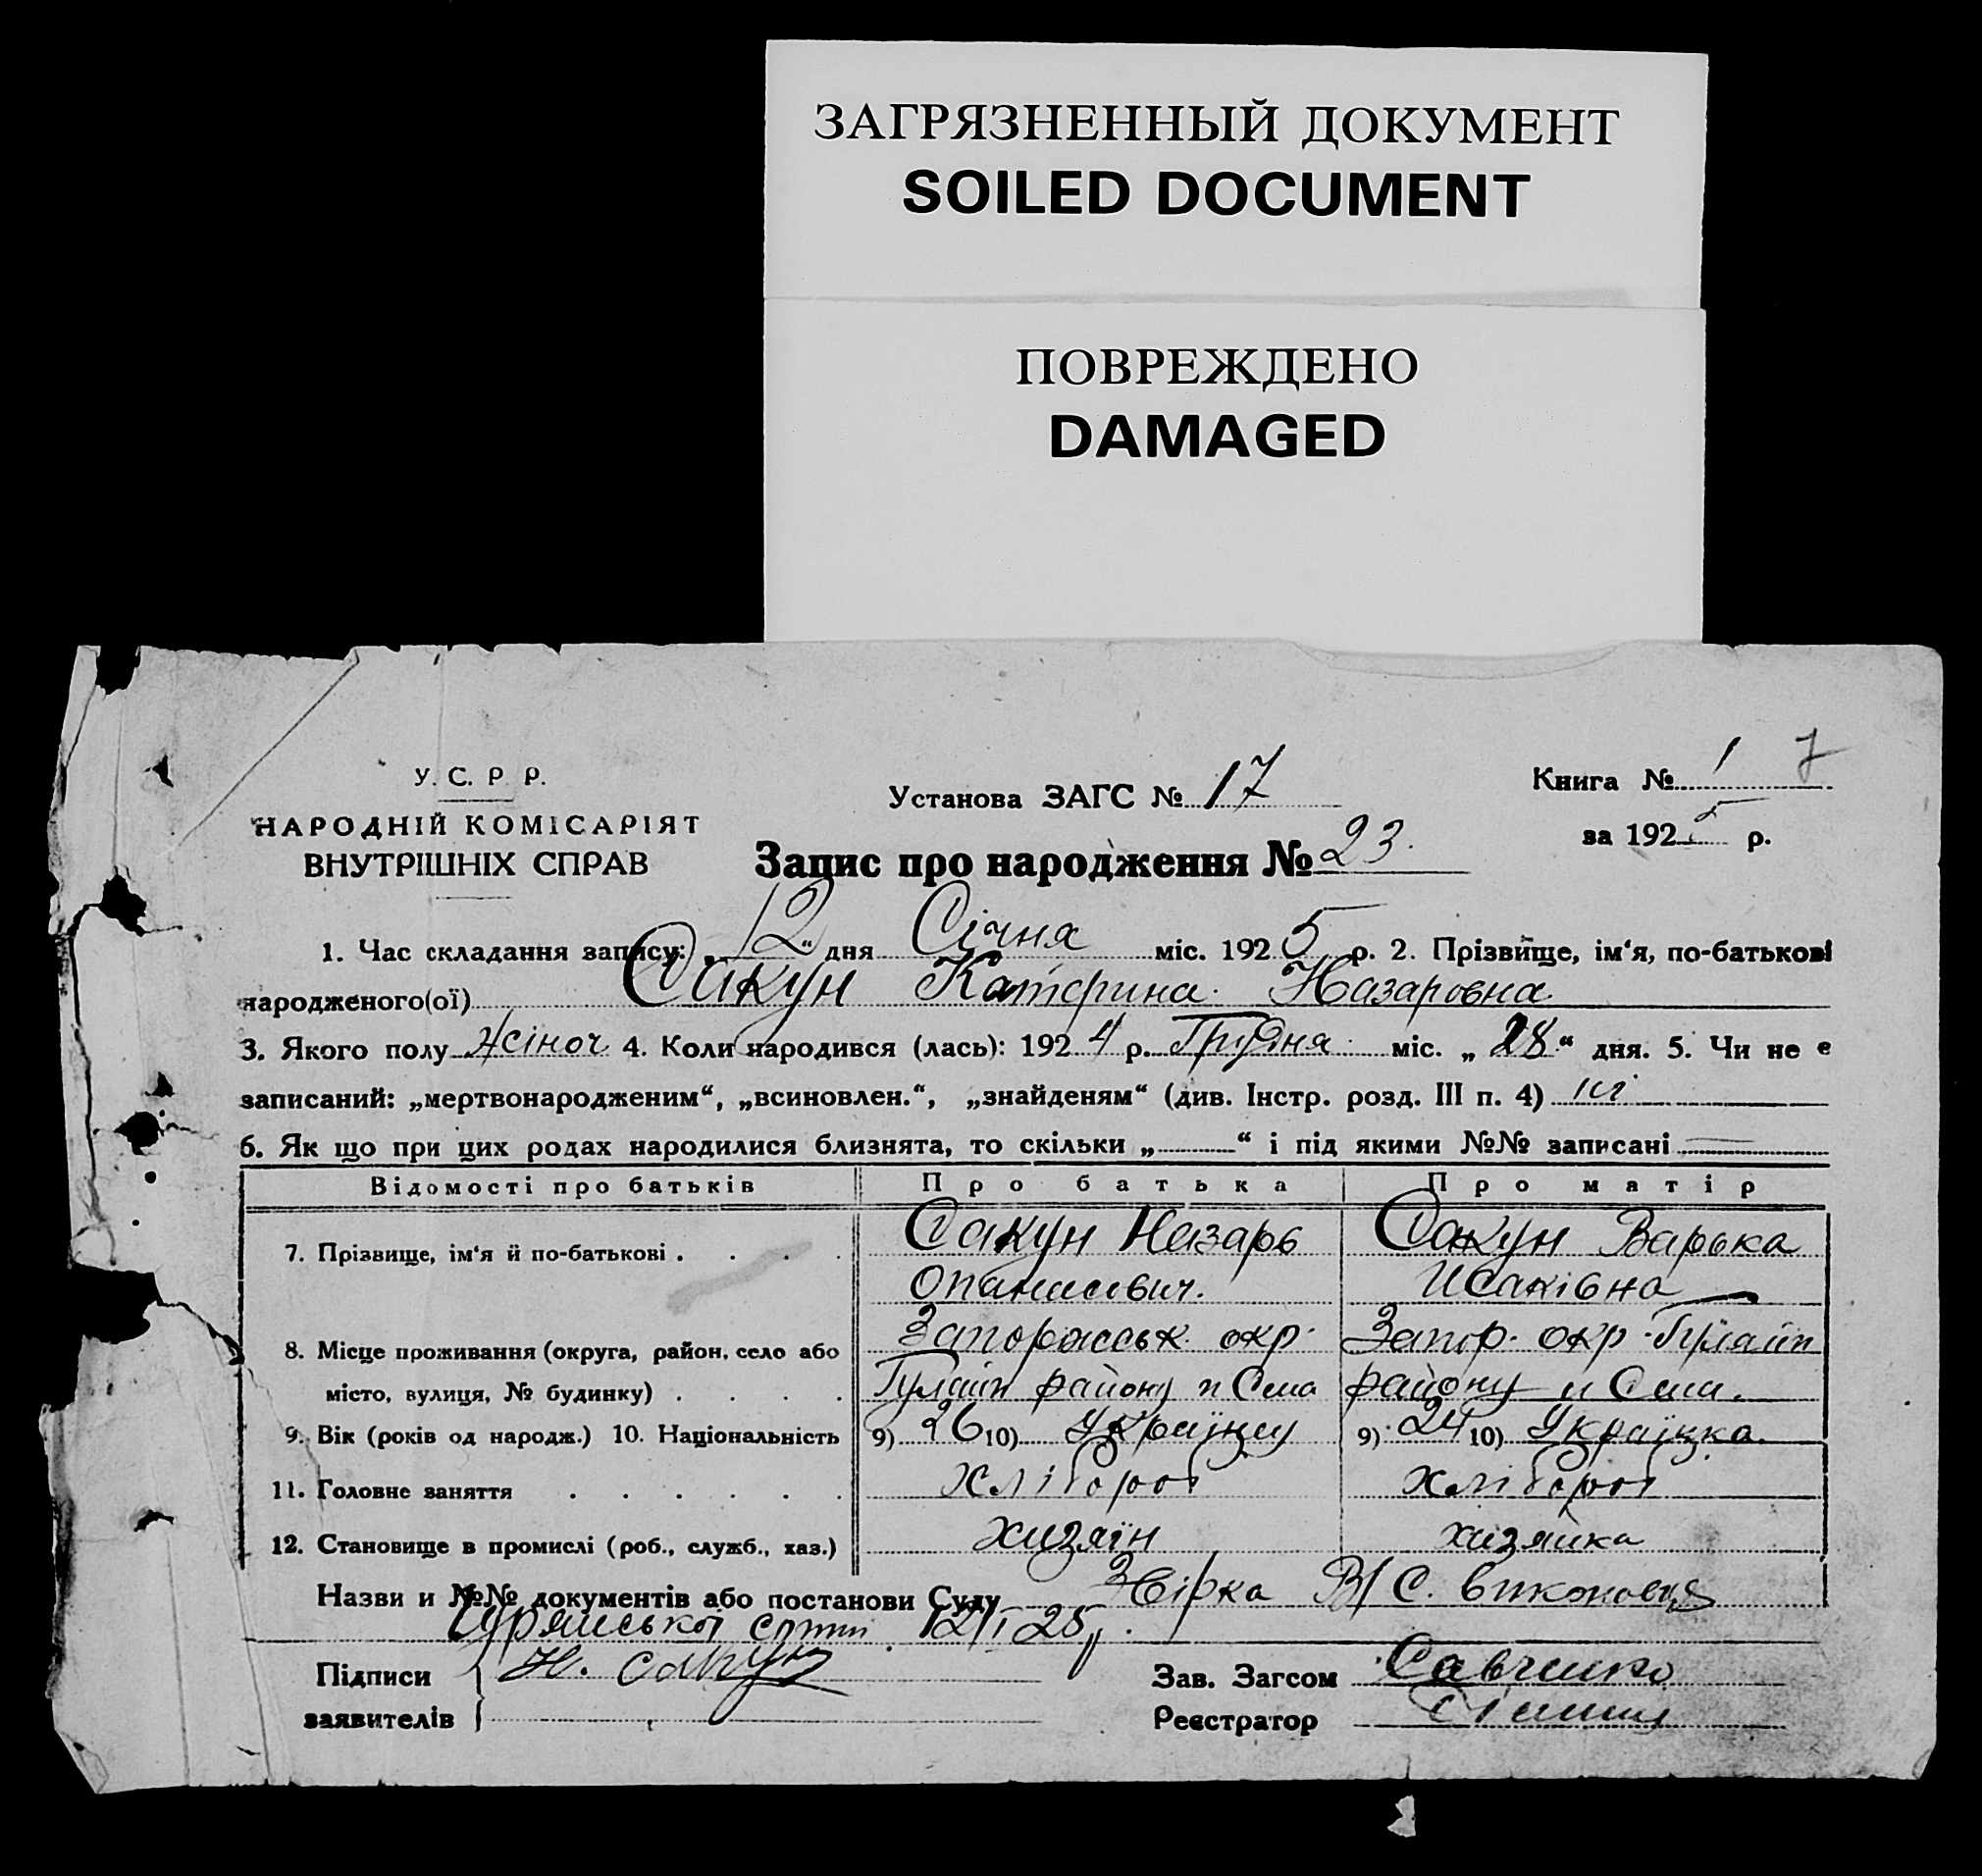 ЗАГРЯЗНЕННЫЙ ДОКУМЕНТ
SOILED DOCUMENT
ПОВРЕЖДЕНО
DAMAGED
У. С. Р Р.
НАРОДНІЙ КОМІСАРІЯТ
ВНУТРІШНІХ СПРАВ
Установа ЗАГС № 17
Книга № 1 7
за 1925 р.
Запис про народження № 23.
1. Час складання запису: 12 " дня Січня міс. 1925 р. 2. Прізвище, ім'я, по-батькові
народженого(ої) Сакун Катерина Назаровна
3. Якого полу жіноч 4. Коли народився (лась): 1924 р. Грудня міс. „ 28 " дня. 5. Чи не є
записаний: „мертвонародженим", „всиновлен.", „знайденям" (див. Інстр. розд. III п. 4) ні
6. Як що при цих родах народилися близнята, то скільки „ " і під якими №№ записані
Відомості про батьків Про батька Про матір
7. Прізвище, ім'я й по-батькові . . . . Сакун Назарь Сакун Варька
Опанасович. Исаківна
8. Місце проживання (округа, район, село або Запорожськ окр. Запор. окр. Гуляйп
місто, вулиця, № будинку) . . . . Гуляйп району району
9. Вік (років од народж.) 10. Національність 9) 26 10) Українец 9) 24 10) Українка.
11. Головне заняття . . . . . . Хлібороб хлібороб
12. Становище в промислі (роб., служб., хаз.) хизяїн хизяйка
Назви и №№ документів або постанови Суду В/С. виконовця
сотні 12/I 25 р.
Підписи Н. Сакун
заявителів
Зав. Загсом Савченко
Реєстратор